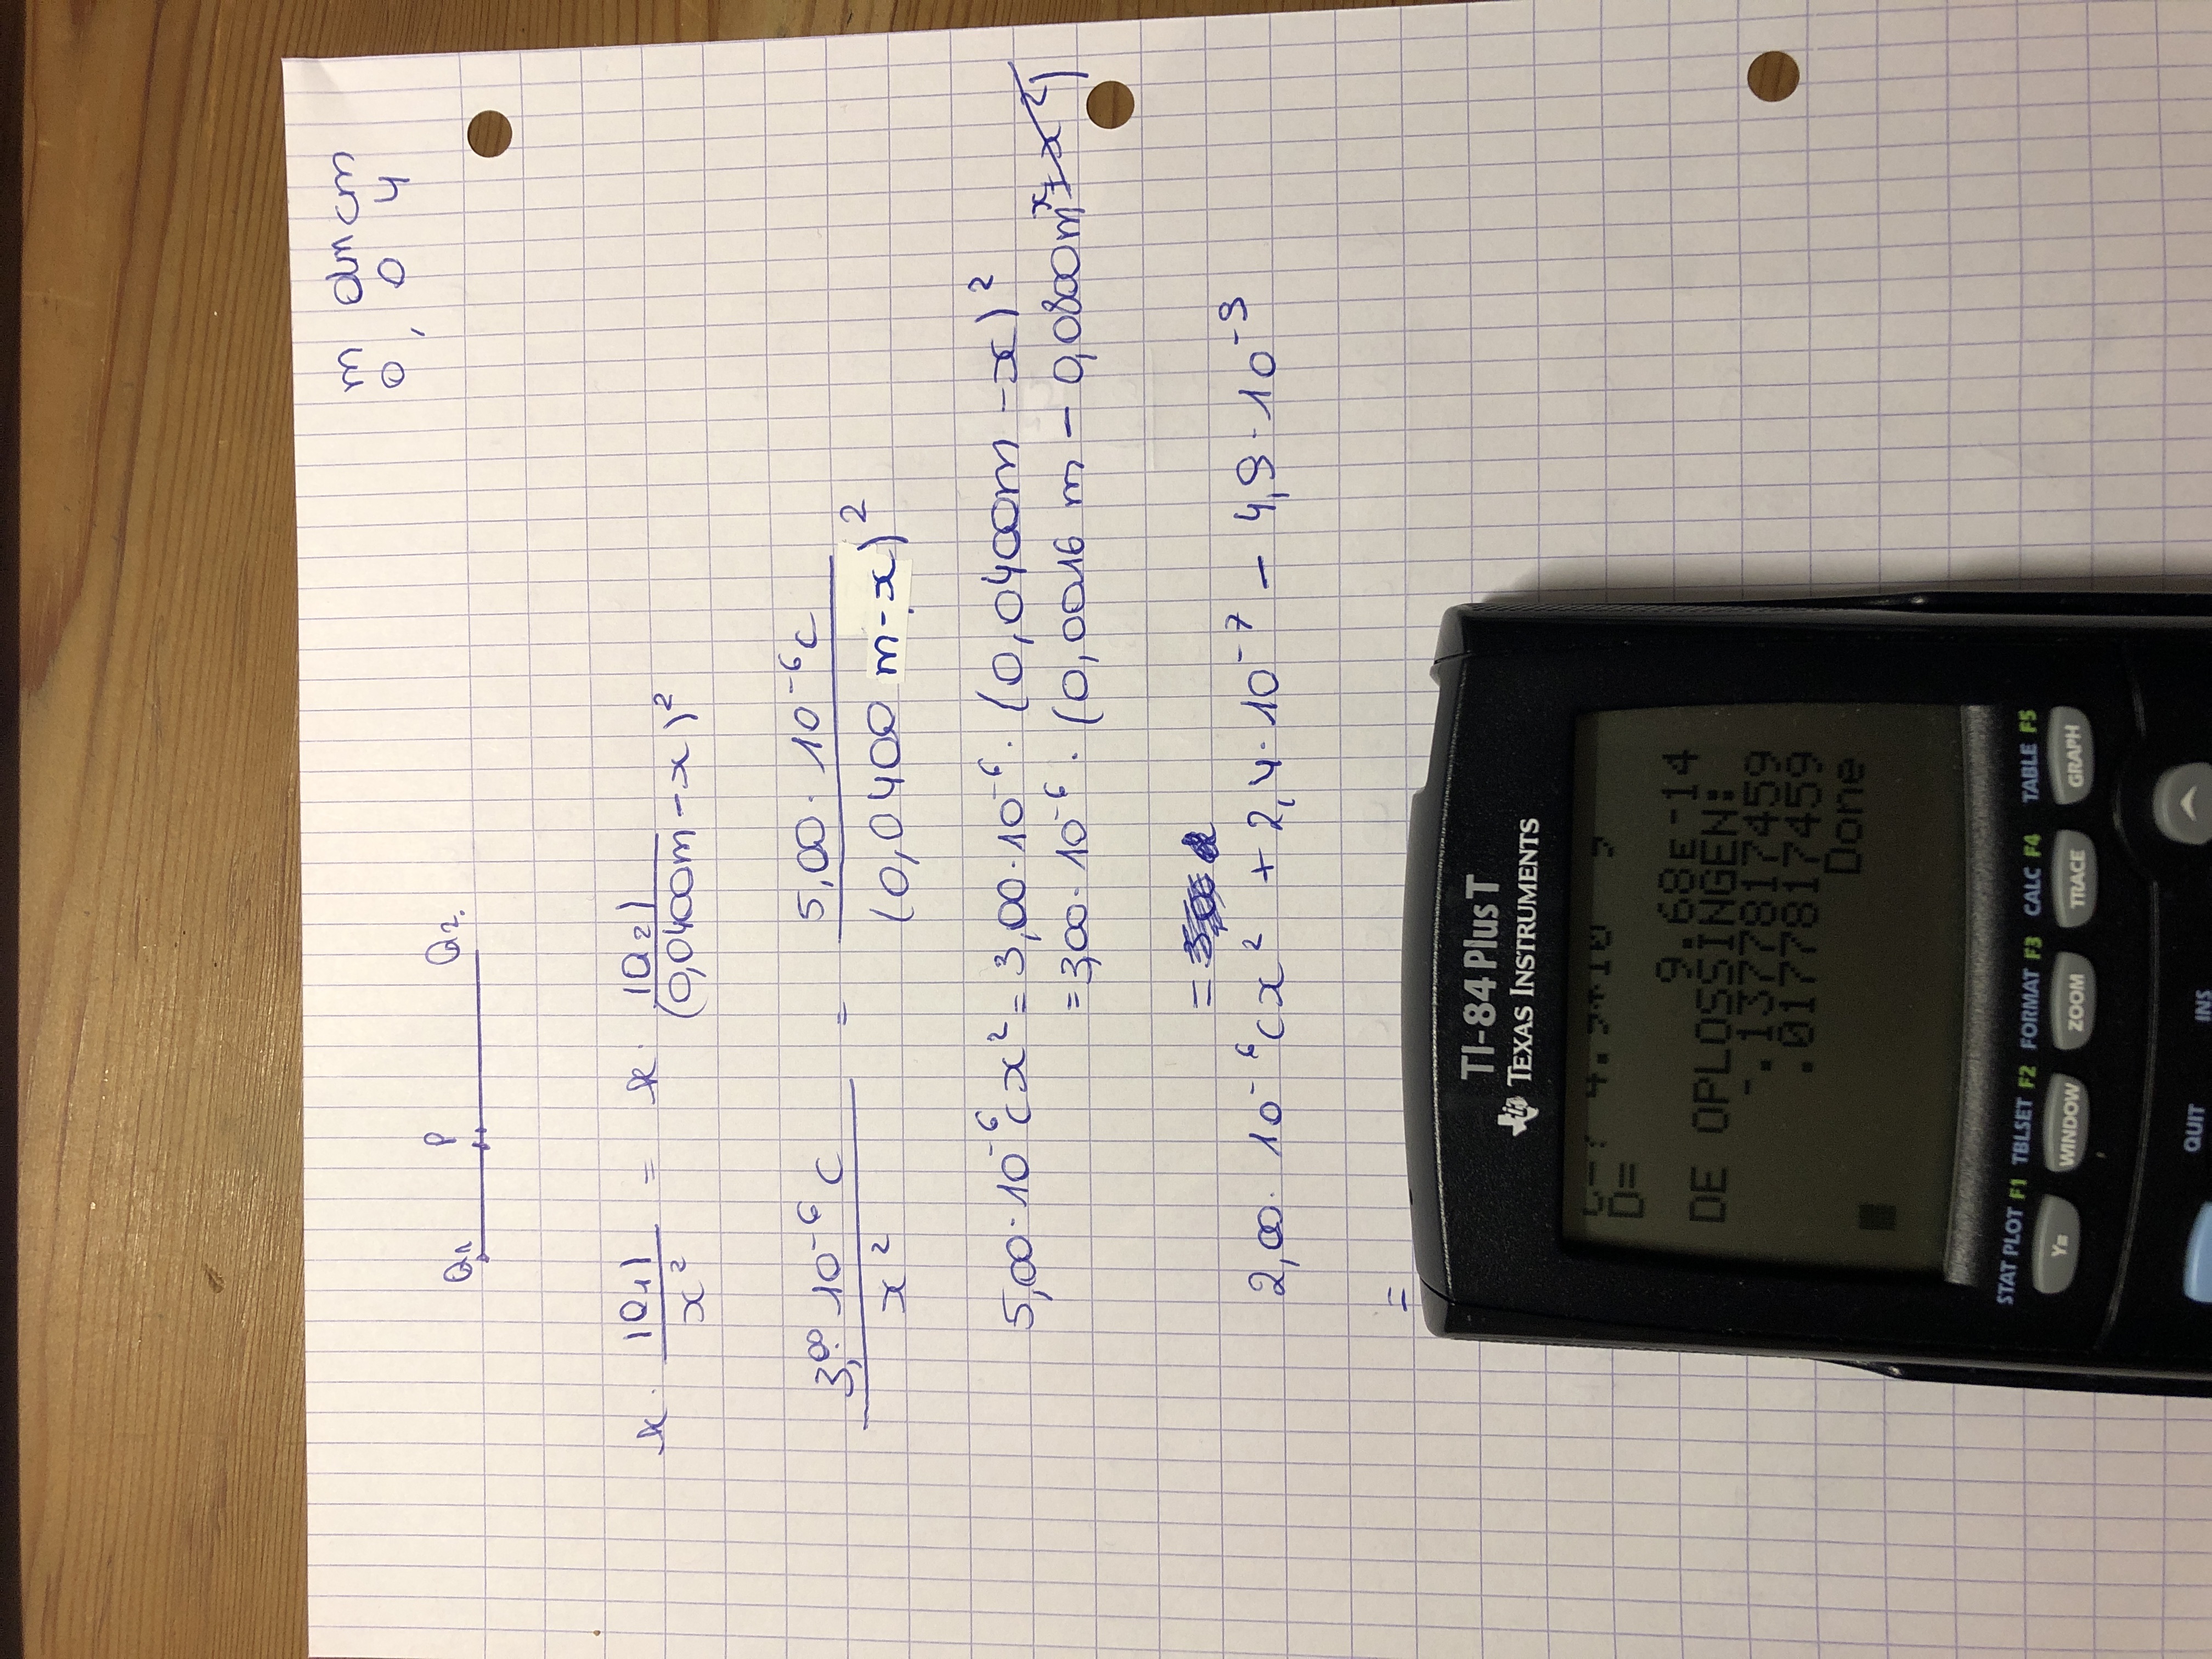 m dm cm
0, 0 4
Q1 P Q2.
k. |Q1| / x² = k. |Q2| / (0,0400m-x)²
3,00. 10⁻⁶ C / x² = 5,00. 10⁻⁶ C / (0,0400 m-x)²
5,00. 10⁻⁶ (x² = 3,00. 10⁻⁶. (0,0400m -x)²
= 3,00. 10⁻⁶. (0,0016 m - 0,0800m
=
2,00. 10⁻⁶ (x² + 2,4. 10⁻⁷ - 4,9. 10⁻⁹
=
TI-84 Plus T
TEXAS INSTRUMENTS
D=
9.68E-14
DE OPLOSSINGEN:
-.1377817459
.0177817459
Done
STAT PLOT F1 TBLSET F2 FORMAT F3 CALC F4 TABLE F5
Y= WINDOW ZOOM TRACE GRAPH
QUIT INS